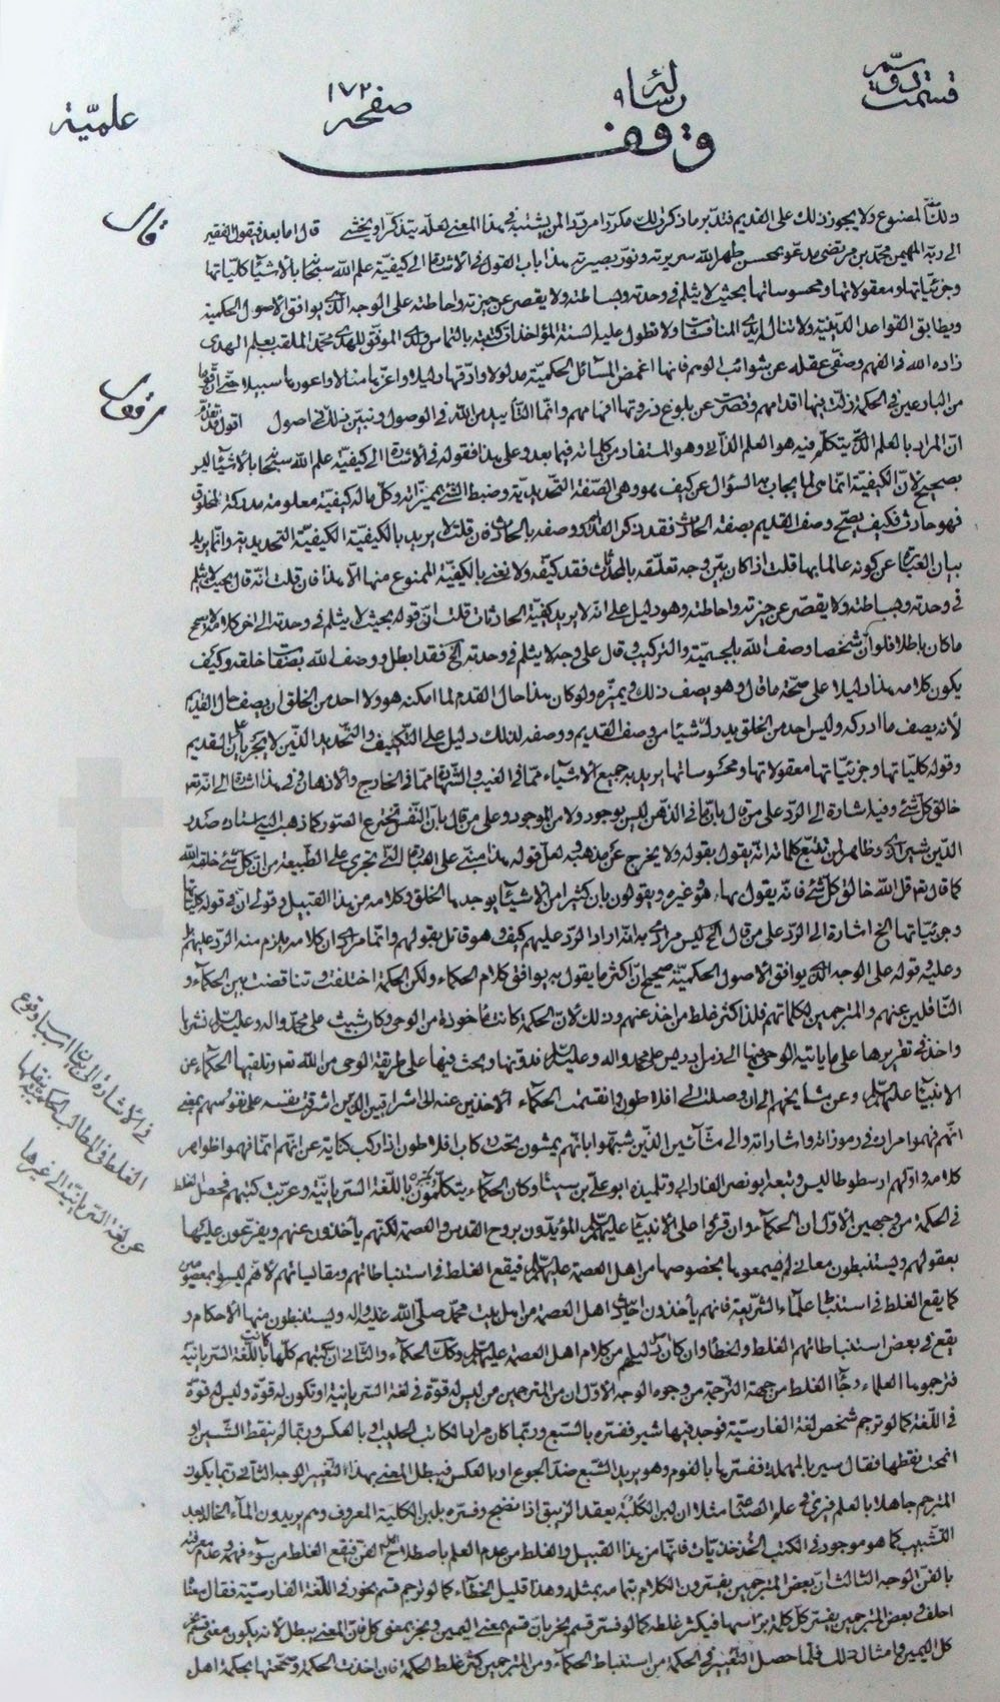 قسمت دوّیم
رسالهٔ ۹
صفحه ۱۷۲
علمیّة
وقف
ذلك المصنوع ولا يجوز ذلك على القديم فتدبر ما ذكرت لك مكررا مرددا لمن يشتبه في هذا المعنى لعله يتذكر او يخشى قال اما بعد فيقول الفقير
الى ربه المهيمن محمد بن مرتضى مدعو بمحسن طهر الله سريرته ونور بصيرته هذا باب القول في الاشارة الى كيفية علم الله سبحانه بالاشياء كلياتها
وجزئياتها ومعقولاتها ومحسوساتها بحيث لا يثلم في وحدته وبساطته ولا يقصر عن حيزته واحاطته على الوجه الذي يوافق الاصول الحكمية
ويطابق القواعد الدينية ولا تناله ايدي المناقشات ولا تطول عليه السنة المؤاخذات كتبته بالتماس ولدي الموفق للهدى محمد الملقب بعلم الهدى
زاده الله في الفهم وصفى عقله عن شوائب الوهم فانها اغمض المسائل الحكمية مدلولا وادقها دليلا واعزها منالا واعورها سبيلا حتى ان
من البارعين في الحكمة زلت فيها اقدامهم وقصرت عن بلوغ ذروتها افهامهم وانما التأييد من الله في الوصول ونبين ذلك في اصول اقول
ان المراد بالعلم الذي يتكلم فيه هو العلم الذاتي وهو المستفاد من كلماته فيما بعد وعلى هذا فقوله في الاشارة الى كيفية علم الله سبحانه بالاشياء ليس
بصحيح لان الكيفية انما هي لما يجاب به السؤال عن كيف هو وهي الصفة التحديدية وضبط الشيء بميزاته وكل ما له كيفية معلومة مدركة للخلق
فهو حادث فكيف يصح وصف القديم بصفة الحادث فقد ذكر القديم ووصفه بالحادث فان قلت يريد بالكيفية الكيفية التحديدية وانما يريد
بيان العبارة عن كونه عالما بها قلت اذا كان يبين وجه تعلقه بالمحدثات فقد كيفه ولا نعني بالكيفية الممنوع منها الا هذا فان قلت انه قال بحيث لا يثلم
في وحدته وبساطته ولا يقصر عن حيزته واحاطته وهو دليل على انه لا يريد كيفية الحادثات قلت ان قوله بحيث لا يثلم في وحدته الى اخر كلامه لا يصح
ما كان باطلا فلو ان شخصا وصف الله بالجسمية والتركيب وقال على وجه لا يثلم في وحدته الخ فقد ابطل ووصف الله بصفات خلقه وكيف
يكون كلامه هذا دليلا على صحة ما قال وهو يصف ذلك ويميزه ولو كان هذا حال القدم لما امكنه هو ولا احد من الخلق ان يصف حال القديم
لانه يصف ما ادركه وليس احد من الخلق يدرك شيئا من وصف القديم ووصفه لذلك دليل على التكييف والتحديد الذين لا يجريان على القديم
وقوله كلياتها وجزئياتها ومعقولاتها ومحسوساتها يريد به جميع الاشياء مما في الغيب والشهادة مما في الخارج والاذهان وفي هذا اشارة الى انه تعالى
خالق كل شيء وفيه اشارة الى الرد على من قال بان ما في الذهن ليس بوجود ولا من الموجود وعلى من قال بان النفس تخترع الصور كما ذهب اليه استاده صدر
الدين شيرازي وظاهر لمن تتبع كلماته انه يقول بقوله ولا يخرج عن مذهبه لعل قوله هذا مبني على العبارة التي تجري على الطبيعة من ان كل شيء خلقه الله
كما قال تعالى قل الله خالق كل شيء فانه يقول بهاء هو وغيره ويقولون بان كثيرا من الاشياء يوجدها الخلق وكلامه من هذا القبيل وقولي ان في قوله كلياتها
وجزئياتها الخ اشارة الى الرد على من قال الخ ليس مرادي به انه اراد الرد عليهم كيف وهو قائل بقولهم وانما مرادي ان كلامه يلزم منه الرد عليهم
وعليه وقوله على الوجه الذي يوافق الاصول الحكمية صحيح ان اكثر ما يقول به يوافق كلام الحكماء ولكن الحكمة اختلفت وتناقضت بين الحكماء و
الناقلين عنهم والمترجمين لكلماتهم فلذا كثر غلط من اخذ عنهم وذلك لان الحكمة كانت مأخوذة من الوحي وكان شيث على محمد واله وعليه السلام نشرها
واخذ في تقريرها على ما ياتيه الوحي فيها الى زمن ادريس على محمد واله وعليه السلام فدونها وبحث فيها على طريقة الوحي من الله تعالى وتلقيها الحكماء عن
الانبياء عليهم السلام وعن مشايخهم الى ان وصلت الى افلاطون وانقسمت الحكماء الاخذين عنه الى اشراقيين الذين اشرقت نفسه على نفوسهم بمعنى
انهم فهموا مراده في رموزاته واشاراته والى مشائيين الذين شبهوا بانهم يمشون تحت ركاب افلاطون اذا ركب كناية عن انهم انما فهموا ظواهر
كلامه واولهم ارسطوطاليس وتبعه ابو نصر الفارابي وتلميذه ابو علي بن سينا وكان الحكماء يتكلمون باللغة السريانية وعربت كتبهم فحصل الغلط
في الحكمة من وجهين الاول ان الحكماء وان قرؤا على الانبياء عليهم السلام المؤيدون بروح القدس والعصمة لكنهم يأخذون عنهم ويفرعون عليها
بعقولهم ويستنبطون معاني لم يسمعوها بخصوصها من اهل العصمة عليهم السلام فيقع الغلط في استنباطاتهم ومقايساتهم لانهم ليسوا بمعصومين
كما يقع الغلط في استنباط علماء الشريعة فانهم يأخذون احاديث اهل العصمة من اهل بيت محمد صلى الله عليه واله ويستنبطون منها الاحكام و
يقع في بعض استنباطاتهم الغلط والخطأ وان كان اصل دليلهم من كلام اهل العصمة عليهم السلام وكذلك الحكماء والثاني ان كتبهم كلها كانت باللغة السريانية
فترجموها العلماء وجاء الغلط من جهة الترجمة من وجوه الوجه الاول ان من المترجمين من ليس له قوة في لغة السريانية او تكون له قوة وليس له قوة
في اللغة كما لو ترجم شخص لغة الفارسية فوجد فيها شير ففسره بالسبع وربما كان مراد الكاتب الحليب او بالعكس وربما لم ينقط الشين او
انمحت نقطها فقال سير بالمهملة ففسرها بالثوم وهو يريد الشبع ضد الجوع او بالعكس فيبطل المعنى بهذا التغيير الوجه الثاني ربما يكون
المترجم جاهلا بالعلم فيرى في علم الصناعة مثلا ان لبن الكلبة يعقد الزيبق اذا نضج وفسره بلبن الكلبة المعروف وهم يريدون الماء الخالد بعد
التشبيب كما هو موجود في الكتب فانها من هذا القبيل والغلط من عدم العلم باصطلاح اهل الفن فيقع الغلط من سوء فهمه وعدم معرفته
بالفن الوجه الثالث ان بعض المترجمين يفسرون الكلام بتمامه بمثله وهذا قليل الخطاء كما لو ترجم قسم بخور في اللغة الفارسية فقال معناه
احلف وبعض المترجمين يفسر كل كلمة براسها فيكثر غلطه كما لو فسر قسم بخور بان قسم بمعنى اليمين وبخور بمعنى كل فان المعنى يبطل لانه يكون معنى قسم بخور
كل اليمين وامثال ذلك فلما حصل التغيير في الحكمة من استنباط الحكماء ومن المترجمين كثر غلط الحكمة فان اخذت الحكمة وصححتها بحكمة اهل
قال
في الاشارة الى بيان اسباب وقوع
الغلط في المطالب الحكمية بنقلها
عن لغة السريانية الى غيرها